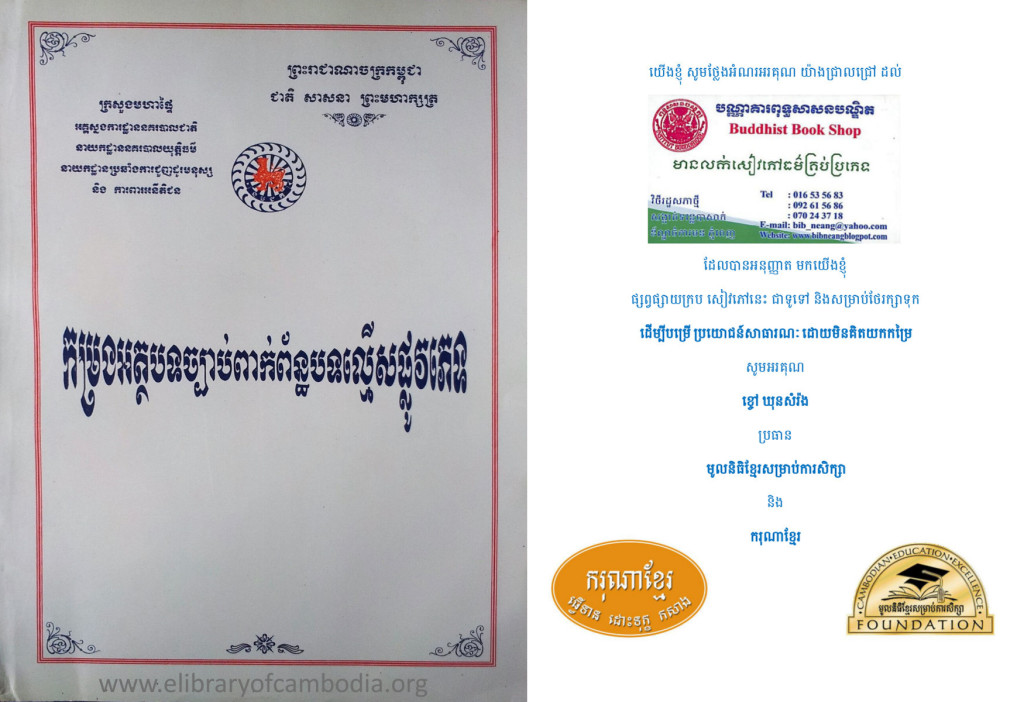 ព្រះរាជាណាចក្រកម្ពុជា
ជាតិ សាសនា ព្រះមហាក្សត្រ
ក្រសួងមហាផ្ទៃ
អគ្គស្នងការដ្ឋាននគរបាលជាតិ
នាយកដ្ឋាននគរបាលយុត្តិធម៌
នាយកដ្ឋានប្រឆាំងការជួញដូរមនុស្ស
និង ការពារអនីតិជន
កម្រងអត្ថបទច្បាប់ពាក់ព័ន្ឋបទល្មើសផ្លូវភេទ
www.elibraryofcambodia.org
យើងខ្ញុំ សូមថ្លែងអំណរអរគុណ យ៉ាងជ្រាលជ្រៅ ដល់
បណ្ណាគារពុទ្ធសាសនបណ្ឌិត
Buddhist Book Shop
មានលក់សៀវភៅធម៌គ្រប់ប្រភេទ
វិថីរដួសភាថ្មី
Tel : 016 53 56 83
: 092 61 56 86
: 070 24 37 18
E-mail: bib_neang@yahoo.com
Website: www.bibneangblogpot.com
ដែលបានអនុញ្ញាត មកយើងខ្ញុំ
ផ្សព្វផ្សាយក្រប សៀវភៅនេះ ជាទូទៅ និងសម្រាប់ថែរក្សាទុក
ដើម្បីបម្រើ ប្រយោជន៍សាធារណៈ ដោយមិនគិតយកកម្រៃ
សូមអរគុណ
ខ្ទៅ ឃុនសំរ៉ង
ប្រធាន
មូលនិធិខ្មែរសម្រាប់ការសិក្សា
និង
ករុណាខ្មែរ
ករុណាខ្មែរ
ធ្វើទាន ដោះទុក្ខ កសាង
CAMBODIAN EDUCATION EXCELLENCE
មូលនិធិខ្មែរសម្រាប់ការសិក្សា
FOUNDATION